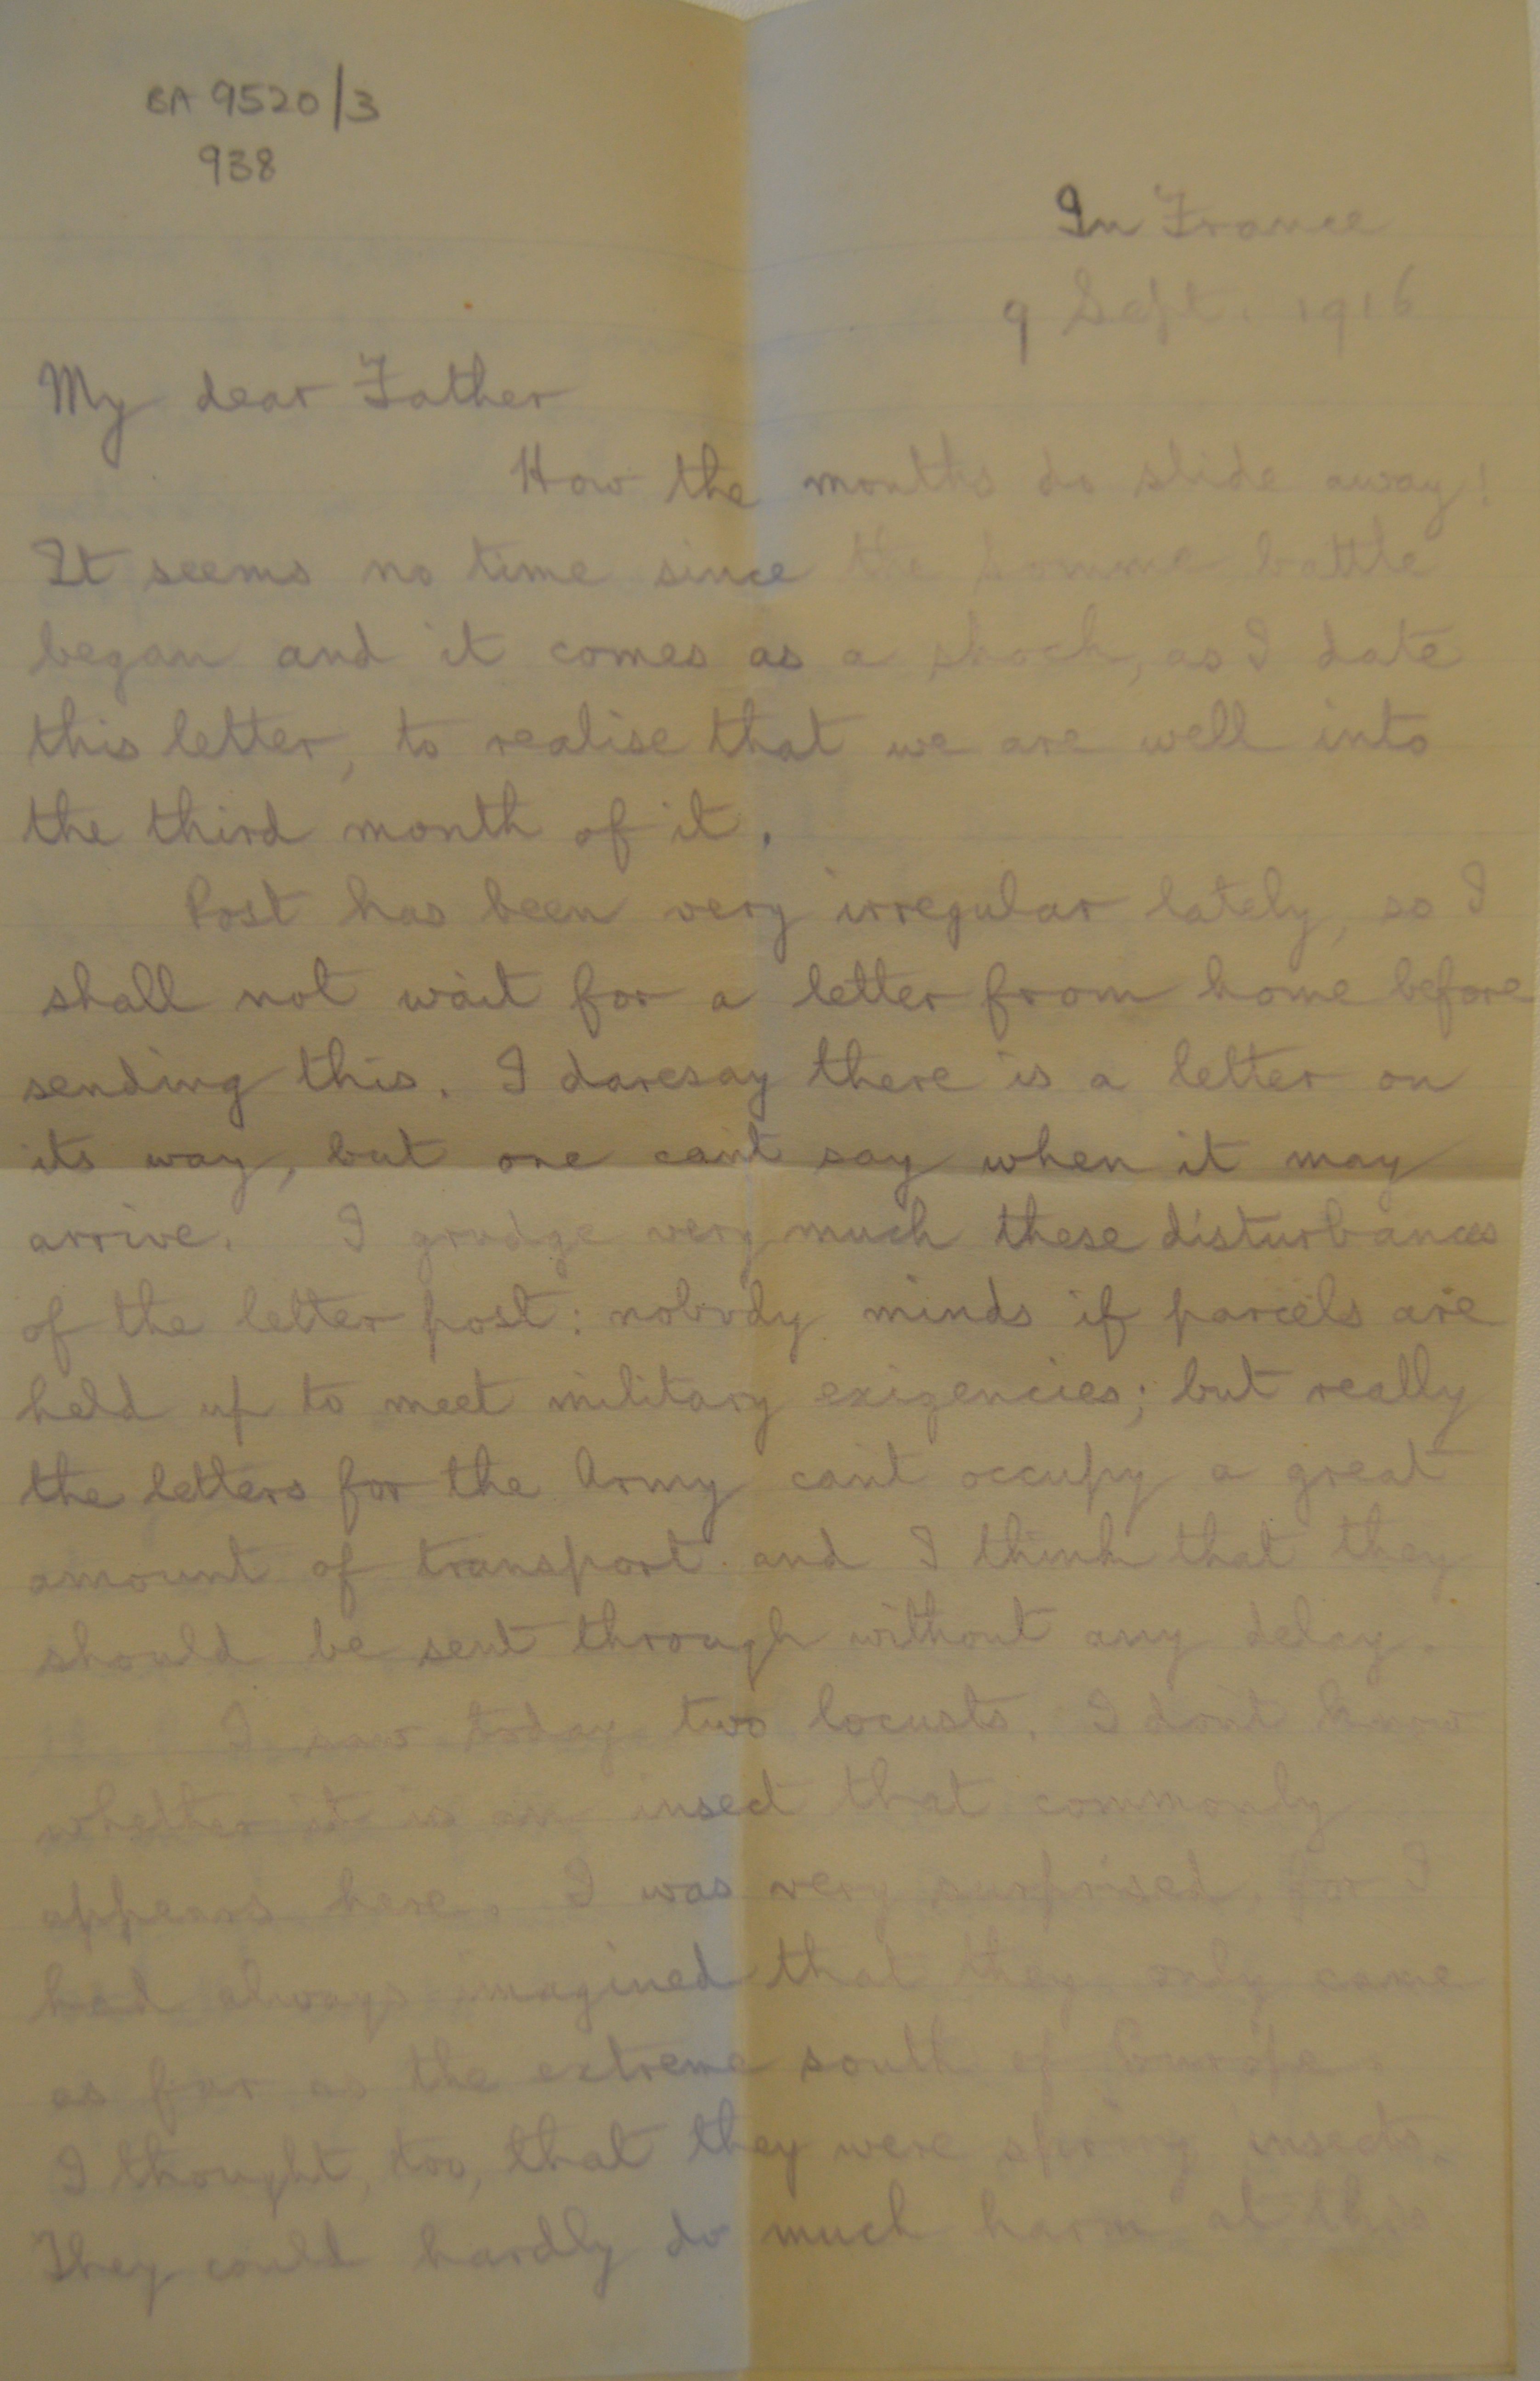 BA 9520/3
938
In France
9 Sept. 1916
My dear Father
How the months do slide away!
It seems no time since the Somme battle
began and it comes as a shock, as I date
this letter, to realise that we are well into
the third month of it.
Post has been very irregular lately, so I
shall not wait for a letter from home before
sending this. I daresay there is a letter on
its way, but one can't say when it may
arrive. I grudge very much these disturbances
of the letter post: nobody minds if parcels are
held up to meet military exigencies; but really
the letters for the Army can't occupy a great
amount of transport and I think that they
should be sent through without any delay.
I saw today two locusts. I don't know
whether it is an insect that commonly
appears here. I was very surprised, for I
had always imagined that they only came
as far as the extreme south of Europe.
I thought, too, that they were spring insects.
They could hardly do much harm at this